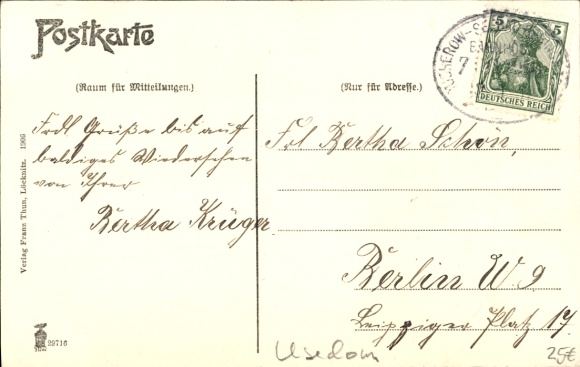 Postkarte
(Raum für Mitteilungen.)
Frdl Grüße bis auf
baldiges Wiedersehen
von Ihrer
Bertha Krüger.
Verlag Franz Thun, Löcknitz. 1906
29716
(Nur für Adresse.)
5 5
DEUTSCHES REICH
BAHNPOST
7
Frl Bertha Schön,
Berlin W 9
Leipziger Platz 17.
Usedom
25€